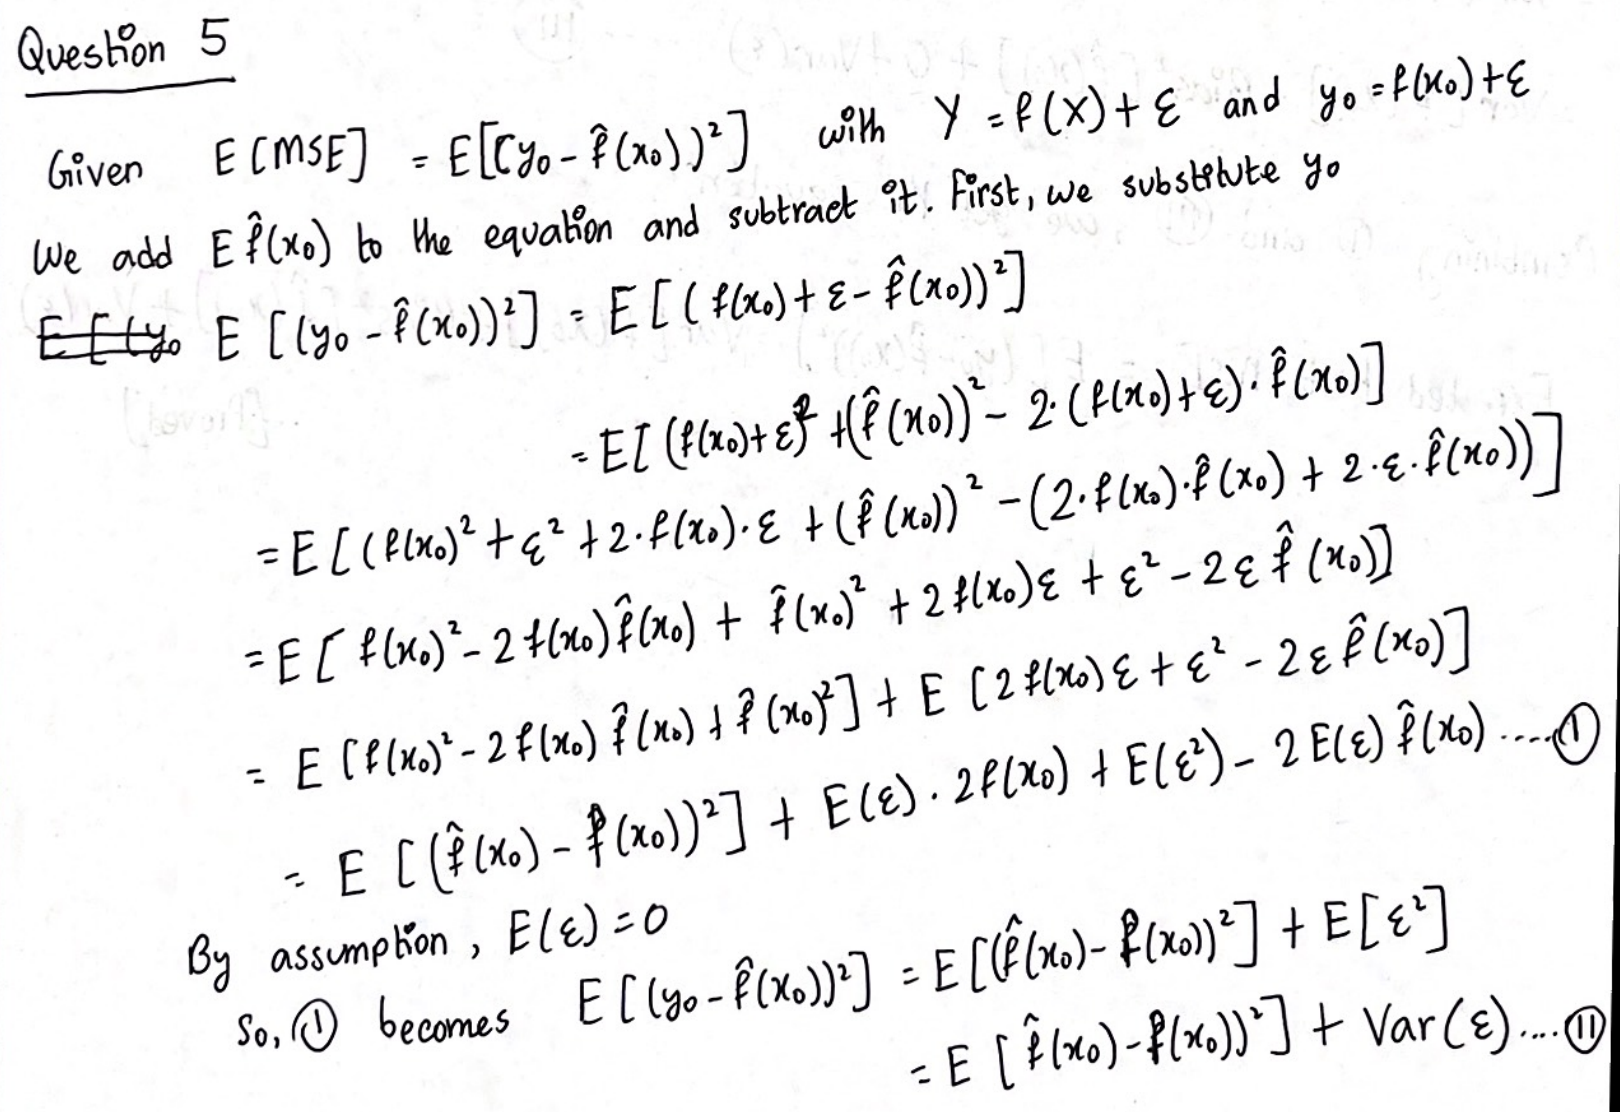 Question 5
Given E[MSE] = E[(y₀ - f̂(x₀))²] with Y = f(X) + ε and y₀ = f(x₀) + ε
We add E f̂(x₀) to the equation and subtract it. First, we substitute y₀
E[(y₀ E[(y₀ - f̂(x₀))²] = E[(f(x₀) + ε - f̂(x₀))²]
= E[(f(x₀) + ε)² + (f̂(x₀))² - 2·(f(x₀) + ε)·f̂(x₀)]
= E[(f(x₀)² + ε² + 2·f(x₀)·ε + (f̂(x₀))² - (2·f(x₀)·f̂(x₀) + 2·ε·f̂(x₀))]
= E[f(x₀)² - 2f(x₀)f̂(x₀) + f̂(x₀)² + 2f(x₀)ε + ε² - 2εf̂(x₀)]
= E[f(x₀)² - 2f(x₀)f̂(x₀) + f̂(x₀)²] + E[2f(x₀)ε + ε² - 2εf̂(x₀)]
= E[(f̂(x₀) - f(x₀))²] + E(ε)·2f(x₀) + E(ε²) - 2E(ε)f̂(x₀) ....Ⓘ
By assumption, E(ε) = 0
So, Ⓘ becomes E[(y₀ - f̂(x₀))²] = E[(f̂(x₀) - f(x₀))²] + E[ε²]
= E[f̂(x₀) - f(x₀))²] + Var(ε)....(II)